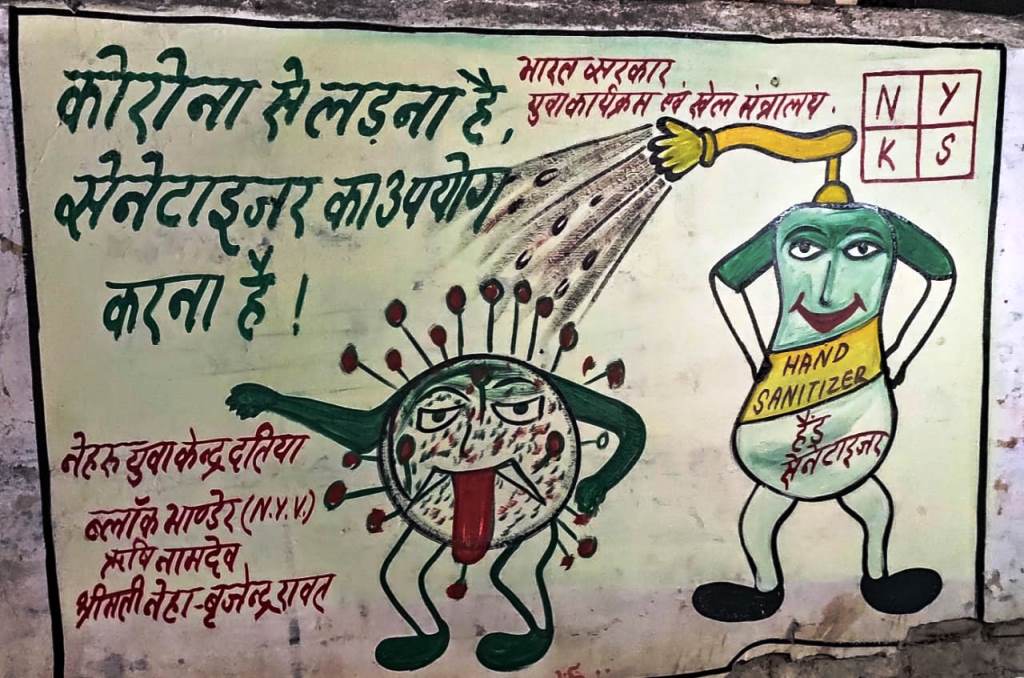 कोरोना से लड़ना है,
सेनेटाइजर का उपयोग
करना है !
भारत सरकार
युवा कार्यक्रम एवं खेल मंत्रालय .
N Y
K S
HAND
SANITIZER
हैंड
सेनेटाइजर
नेहरू युवा केन्द्र दतिया
ब्लॉक भाण्डेर (N.Y.V.)
ऋषि नामदेव
श्रीमती नेहा-बृजेन्द्र रावत